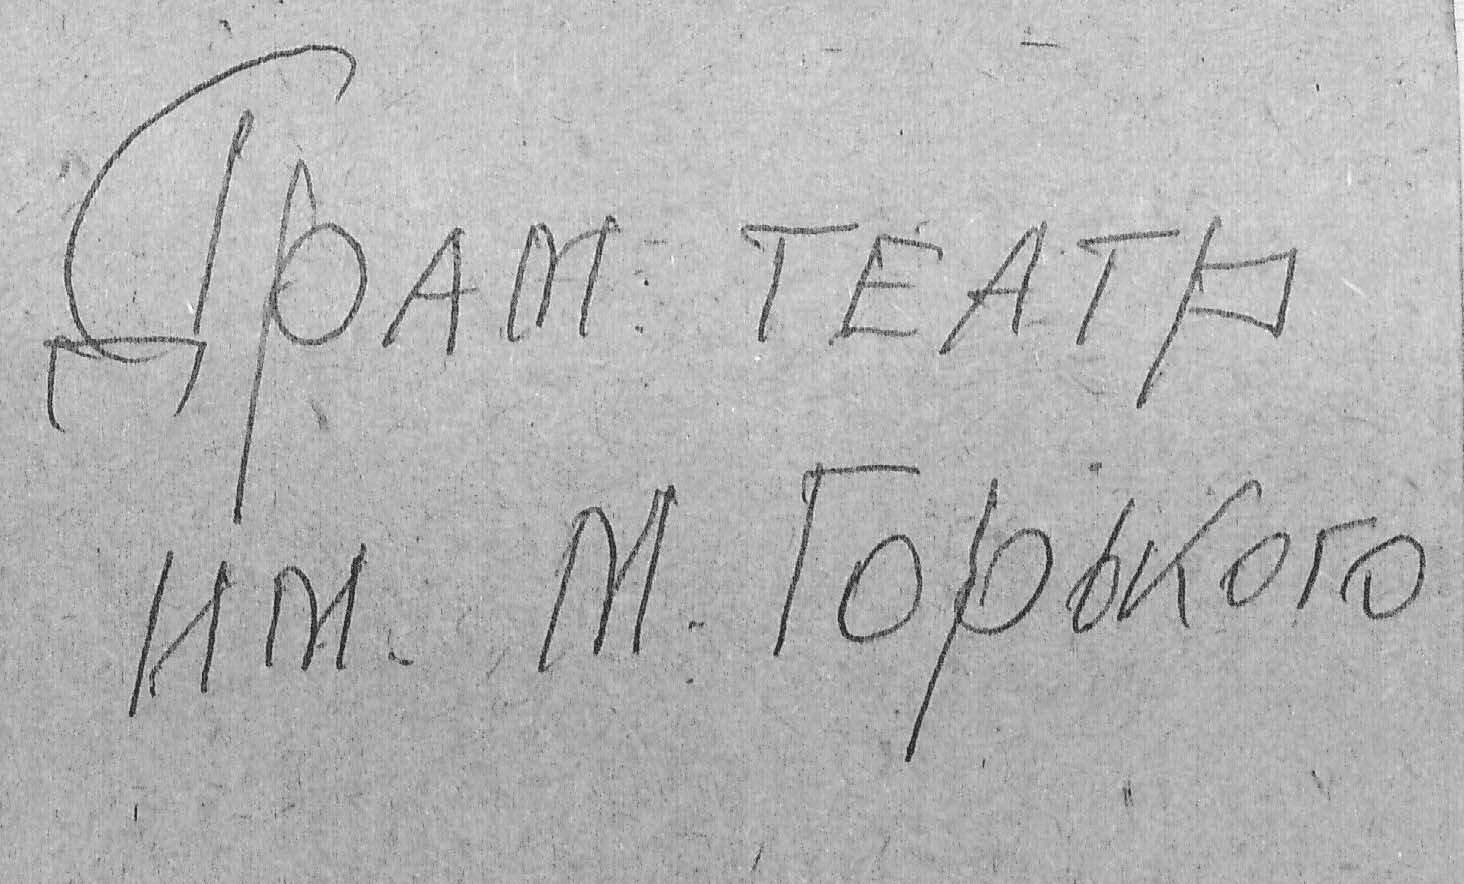 Драм. театр
им. М. Горького